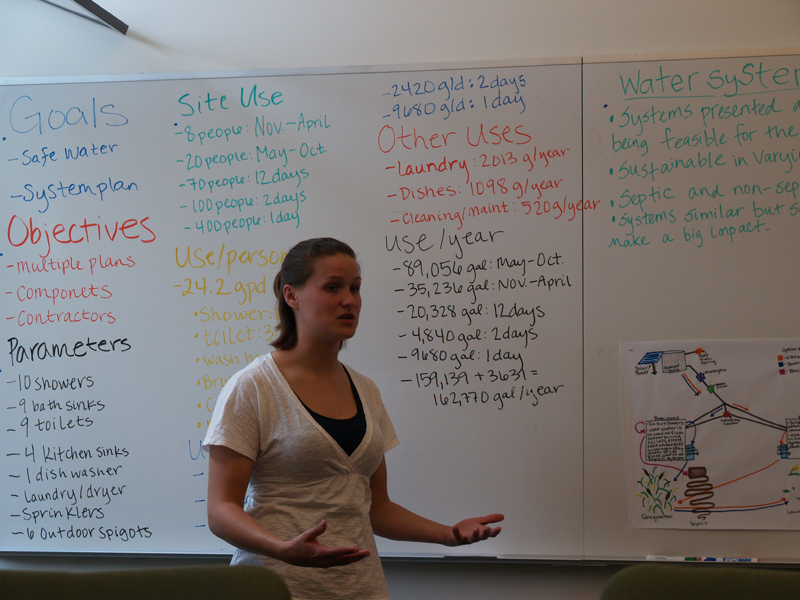 Goals
- Safe Water
- System plan
Objectives
- multiple plans
- Componets
- Contractors
Parameters
- 10 showers
- 9 bath sinks
- 9 toilets
- 4 Kitchen sinks
- 1 dish washer
- Laundry/dryer
- Sprinklers
- 6 Outdoor spigots
Site Use
- 8 people: Nov.-April
- 20 people: May-Oct.
- 70 people: 12 days
- 100 people: 2 days
- 400 people: 1 day
Use/person
- 24.2 gpd
• Shower:
• toilet: 3
• wash
- 2420 g/d: 2 days
- 9680 g/d: 1 day
Other Uses
- Laundry: 2013 g/year
- Dishes: 1098 g/year
- Cleaning/maint: 520 g/year
Use/year
- 89,056 gal: May-Oct.
- 35,236 gal: Nov.-April
- 20,328 gal: 12 days
- 4,840 gal: 2 days
- 9680 gal: 1 day
- 159,139 + 3631 =
162,770 gal/year
Water System
• Systems presented a
being feasible for the
• Sustainable in Varyin
• Septic and non-sep
• Systems similar but s
make a big impact.
Septic